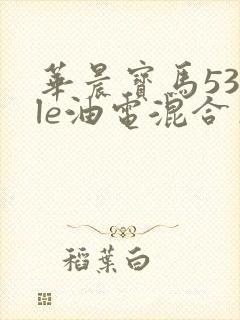 華晨寶馬53
le油電混合
稻葉白